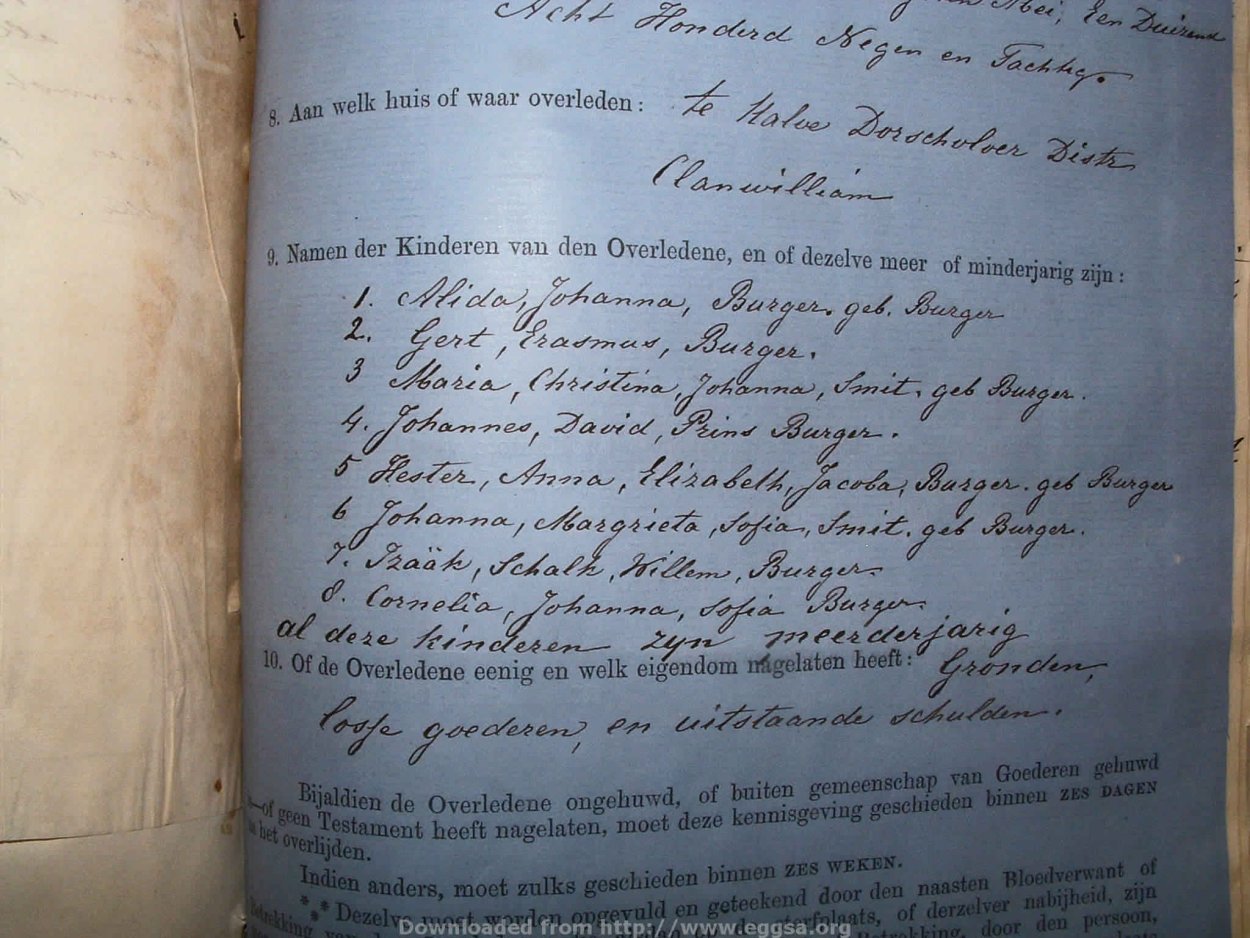 Mei, Een Duizend
Acht Honderd Negen en Tachtig.
8. Aan welk huis of waar overleden: te Halve Dorschvloer Distr
Clanwilliam
9. Namen der Kinderen van den Overledene, en of dezelve meer of minderjarig zijn:
1. Alida, Johanna, Burger. geb. Burger
2. Gert, Erasmus, Burger.
3 Maria, Christina, Johanna, Smit. geb Burger.
4. Johannes, David, Prins Burger.
5 Hester, Anna, Elizabeth, Jacoba, Burger. geb Burger
6 Johanna, Margrieta, Sofia, Smit. geb Burger.
7. Izääk, Schalk, Willem, Burger.
8. Cornelia, Johanna, Sofia Burger.
al deze kinderen zyn meerderjarig
10. Of de Overledene eenig en welk eigendom nagelaten heeft: Gronden,
losse goederen, en uitstaande schulden.
Bijaldien de Overledene ongehuwd, of buiten gemeenschap van Goederen gehuwd
—of geen Testament heeft nagelaten, moet deze kennisgeving geschieden binnen ZES DAGEN
het overlijden.
Indien anders, moet zulks geschieden binnen ZES WEKEN.
*** Dezelve moet worden opgevuld en geteekend door den naasten Bloedverwant of
Betrekking van de sterfplaats, of derzelver nabijheid, zijn
Betrekking, door den persoon,
Downloaded from http://www.eggsa.org